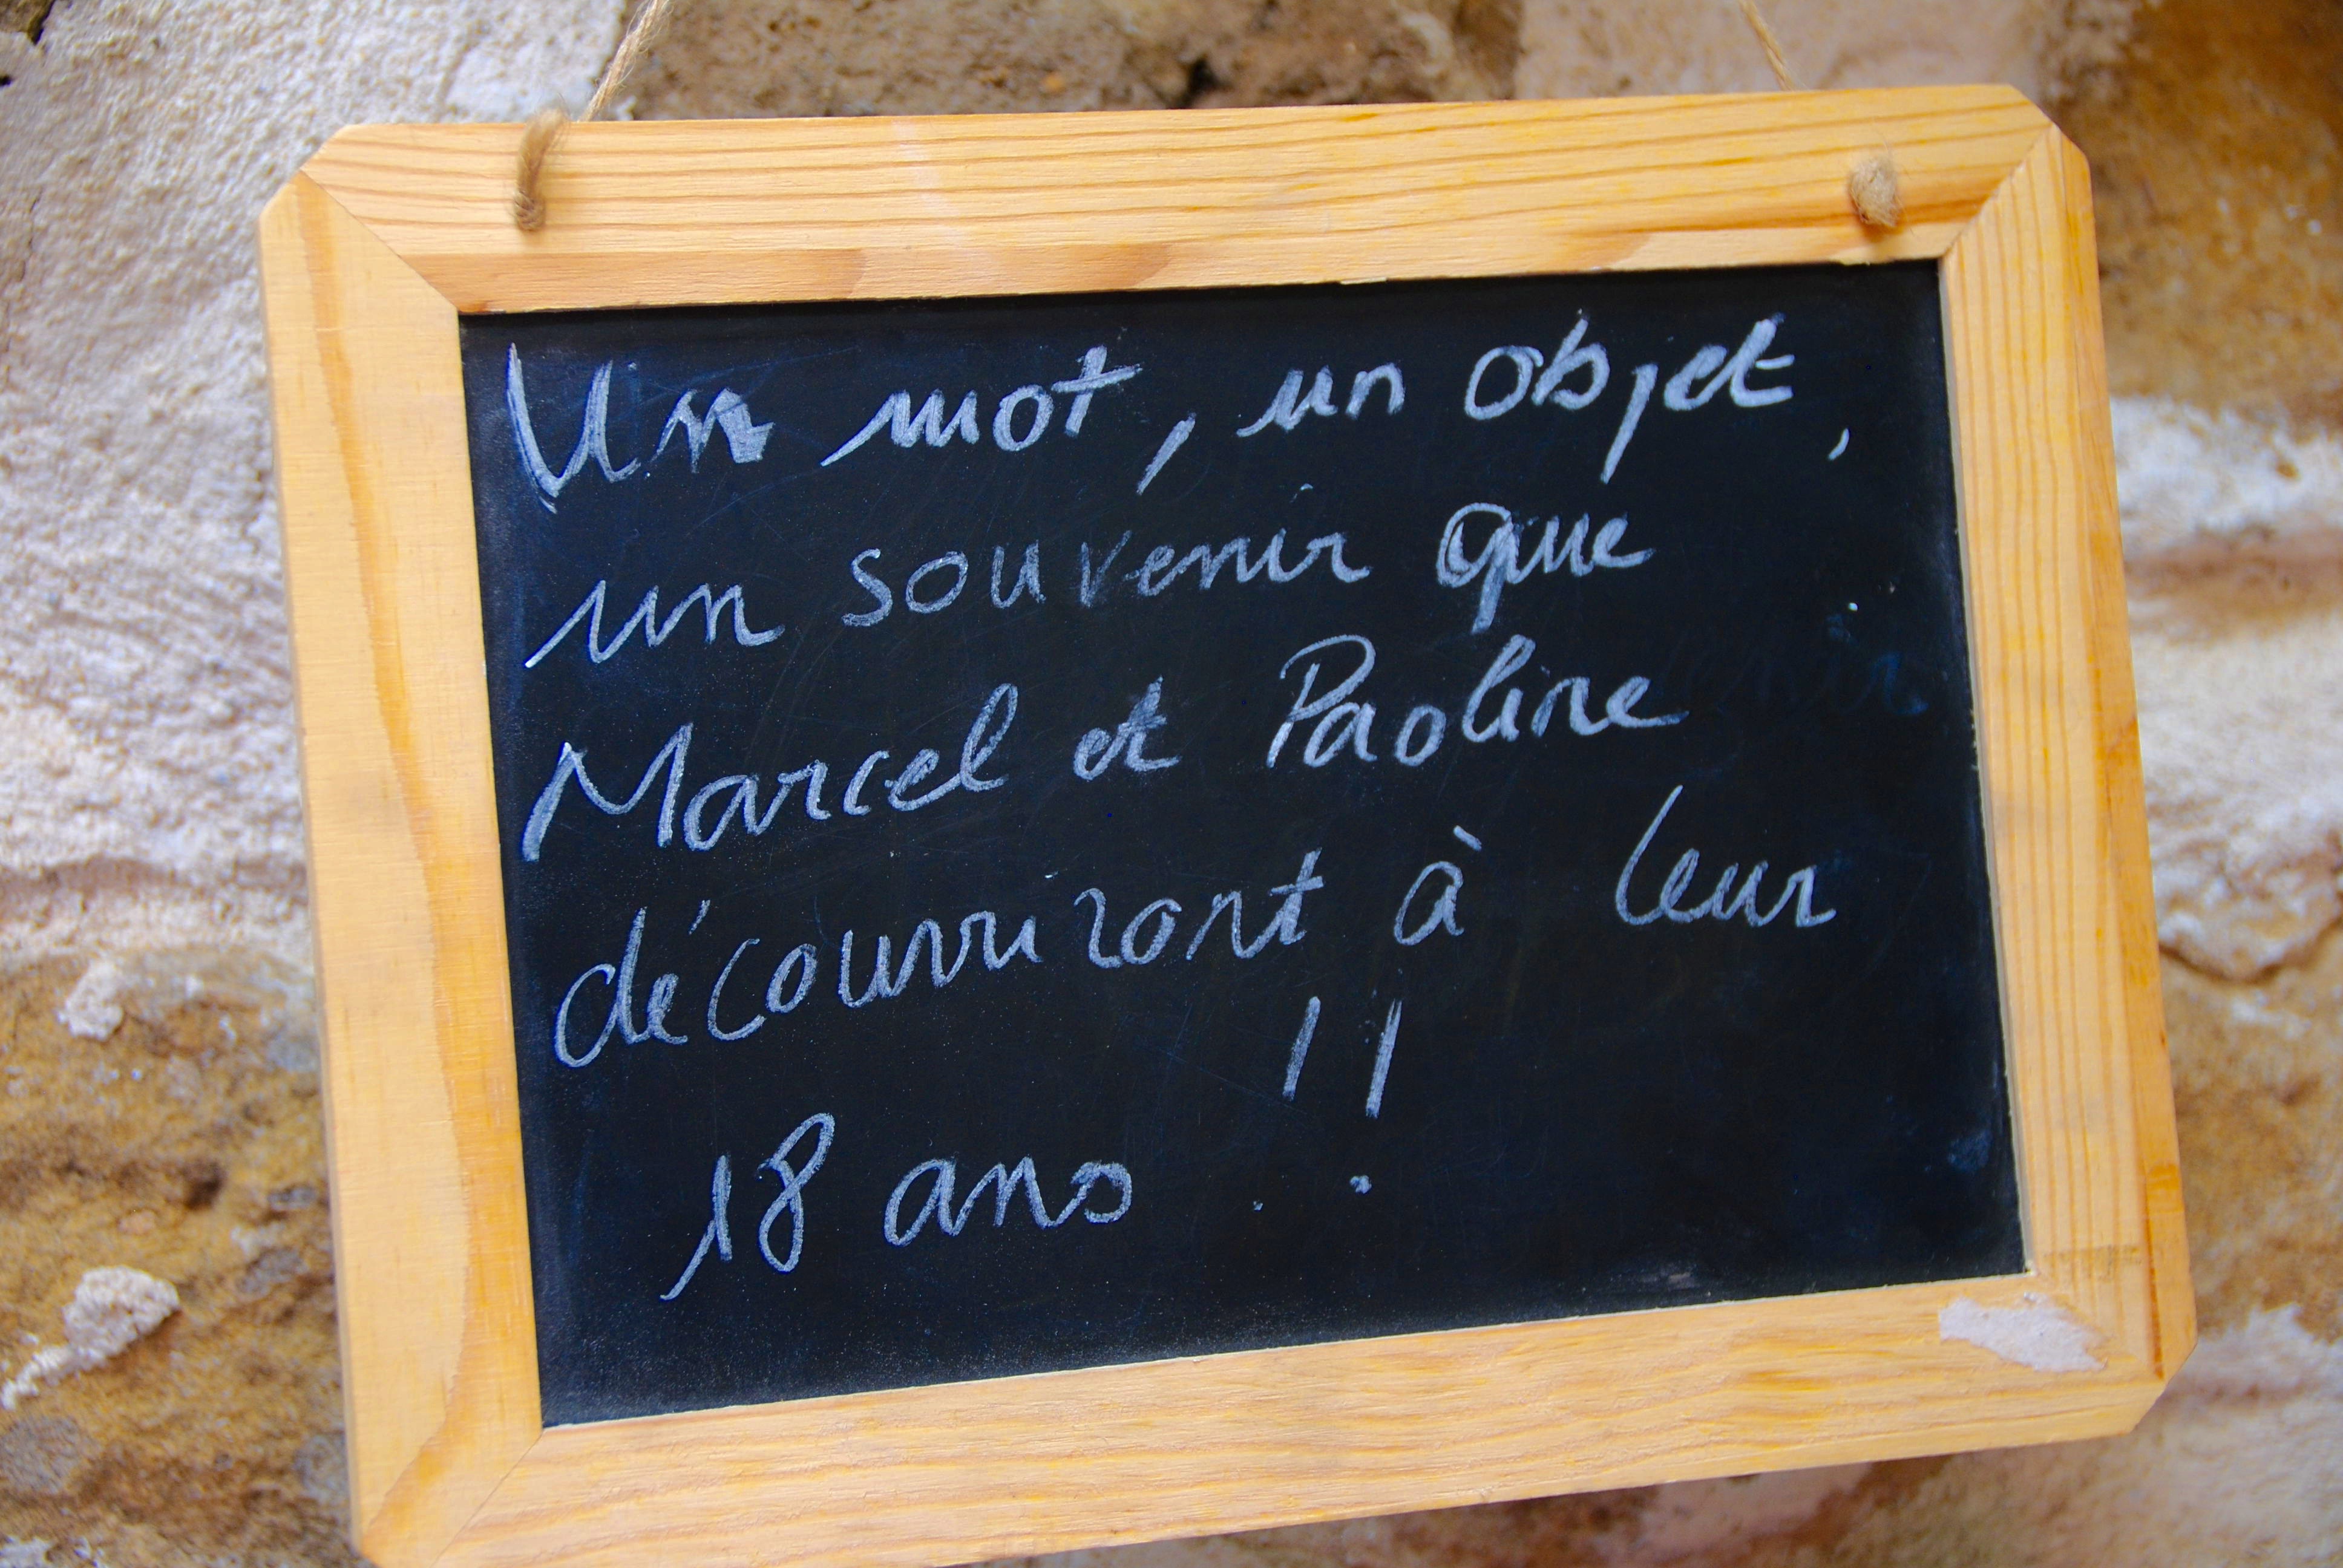 Un mot, un objet,
un souvenir que
Marcel et Paoline
découvriront à leur
18 ans !!